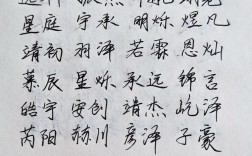 星庭 宇承 明烁 煜凡
靖初 羽泽 若霖 恩灿
慕辰 星烁 永远 锦言
皓宇 安创 靖杰 屹泽
芮阳 赫川 彦泽 子豪